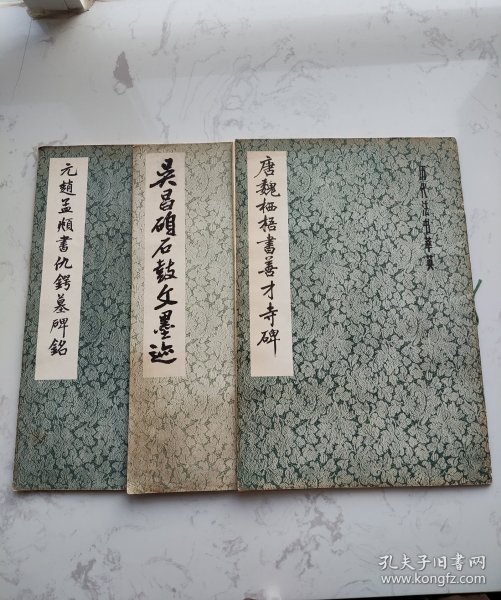 元趙孟頫書仇鍔墓碑銘
吴昌碩石鼓文墨迹
唐魏栖梧書善才寺碑
历代法书萃英
孔夫子旧书网
www.kongfz.com